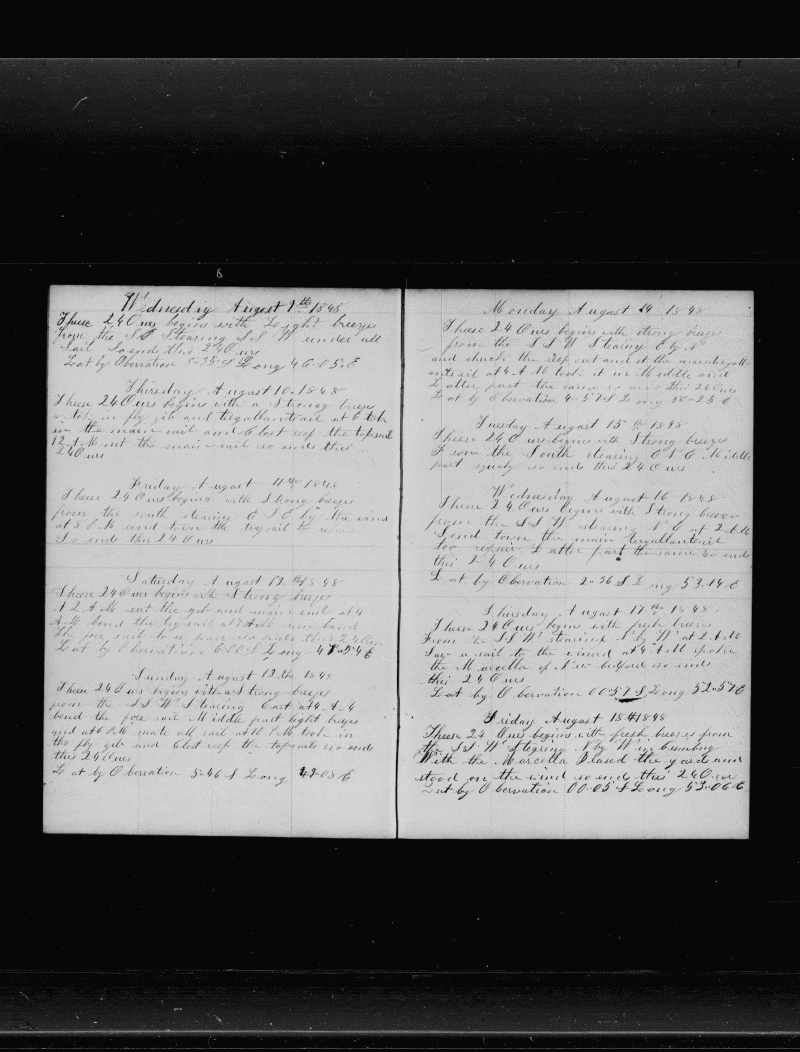 8
Wednesday August 9th 1848
These 24 Ours begins with Leight breezes
from the SE Stearing S S W under all
Sail So ends this 24 Ours
Lat by Obervation 5-35 S Long 46-05 E
Thirsday August 10 1848
These 24 Ours begins with a Strong breeze
took in fly gib and tegallantsail at 6 took
in the main sail and Clost reep the topsail
12 A M out the main sail so ends this
24 Ours
Friday August 11th 1848
These 24 Ours begins with Strong breezes
from the south stearing E S E by the wind
at 8 P M send town the trysail to
So ends this 24 Ours
Saturday August 12th 1848
These 24 Ours begins with Strong breezes
at 2 A M sat the gib and main sail at 4
A M bend the trysail at 7 A M un bend
The fore sail to re pair so ends this 24 Our
Lat by Obervation 6 00 S Long 47-54 E
Sunday August 13th 1848
These 24 Ours begins with a Strong breezes
from the S S W Stearing East at 4 A M
bend the fore sail Middle part light breezes
and at 6 P M mate all sail at 11 P M took in
the fly gib and Clost reep the topsails so ends
this 24 Ours
Lat by Obervation 5-46 S Long 49-08 E
Monday August 14 1848
These 24 Ours begins with strong breezes
from the S S W Staring E by N
and shuck the Reep out and sat the maintegall
antsail at 4 A M took it in Middle and
Latter part the same so ends this 24 Ours
Lat by Obervation 4-57 S Long 50-25 E
Tuesday August 15th 1848
These 24 Ours begins with Strong breezes
From the South stearing E N E Middle
part equaly so ends this 24 Ours
Wednesday August 16 1848
These 24 Ours begins with Strong breezes
from the S S W stearing N E at 2 A M
Send town the main tegallantsail
too repair Latter part the same so ends
this 24 Ours
Lat by Obervation 2-36 S Long 53.14 E
Thirsday August 17th 1848
These 24 Ours begins with fresh breezes
From the S S W stearing N by W at 2 A M
Saw a sail to the winard at 4 A M spoke
the Marcella of New bedford so ends
this 24 Ours
Lat by Obervation 00-57 S Long 52-57 E
Friday August 18th 1848
These 24 Ours begins with fresh breezes from
the S S W Stearing N by W in Cumbiny
With the Marcella Blased the yards and
stood on the wind so ends this 24 Our
Lat by Obervation 00-05 S Long 53-06 E